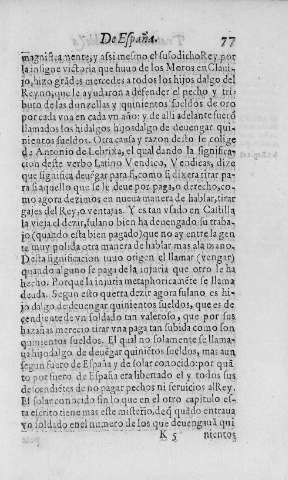 De España. 77
magnificamente, y assi mesmo el susodicho Rey, por
la insigne victoria que huuo de los Moros en Claui-
jo, hizo grãdes mercedes a todos los hijos dalgo del
Reyno, que le ayudaron a defender el pecho y tri
buto de las dunzellas y quinientos sueldos de oro
por cada vna en cada vn año: y de alli adelante fuerõ
llamados los hidalgos hijosdalgo de deuengar qui-
nientos sueldos. Otra causa y razon desto se colige
de Antonio de Lebrixa, el qual dando la significa-
cion deste verbo Latino Vendico, Vendicas, dize
que significa deuẽgar para si, como si dixera tirar pa-
ra si aquello que se le deue por paga, o derecho, co-
mo agora dezimos en nueua manera de hablar, tirar
gajes del Rey, o ventajas. Y es tan vsado en Castilla
la vieja dezir, fulano bien ha deuengado su traba-
jo (quando esta bien pagado) que no ay entre la gen
te muy polida otra manera de hablar mas ala mano.
Desta significacion tuuo origen el llamar (vengar)
quando alguno se paga de la injuria que otro le ha
hecho. Porque la injuria metaphoricamẽte se llama
deuda. Segun esto querra dezir agora fulano es hi-
jo dalgo de deuengar quinientos sueldos, que es de
cendiente de vn soldado tan valeroso, que por sus
hazañas merecio tirar vna paga tan subida como son
quinientos sueldos. El qual no solamente se llama-
ua hijodalgo de deuẽgar quiniẽtos sueldos, mas aun
segun fuero de España y de solar conocido: por quã
to por fuero de España era libertado el y todos sus
decendiẽtes de no pagar pechos ni seruicios al Rey.
El solar conocido sin lo que en el otro capitulo es-
ta escrito tiene mas este misterio, deq̃ quãdo entraua
vn soldado en el numero de los que deuengauã qui
K 5 nientos